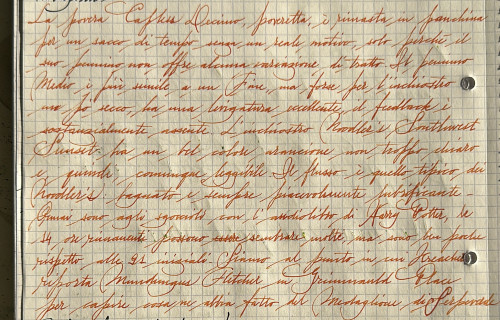 La povera Caflisch Decimo, poveretta, è rimasta in panchina
per un sacco di tempo senza un reale motivo, solo perché il
suo pennino non offre alcuna variazione di tratto. Il pennino
Medio, è più simile a un Fine, ma forse per l'inchiostro
un po' secco, ha una levigatura eccellente, il feedback è
sostanzialmente assente. L'inchiostro Noodler's, Southwest
Sunset, ha un bel colore arancione non troppo chiaro
e, quindi, comunque leggibile. Il flusso è quello tipico dei
Noodler's: bagnato e sempre piacevolmente lubrificante.
Ormai sono agli sgoccioli con l'audiolibro di Harry Potter, le
14 ore rimanenti possono essere sembrare molte, ma sono ben poche
rispetto alle 21 iniziali. Siamo al punto in cui Kreacher
riporta Mundungus Fletcher in Grimmauld Place
per capire cosa ne abbia fatto del Medaglione di Serpeverde